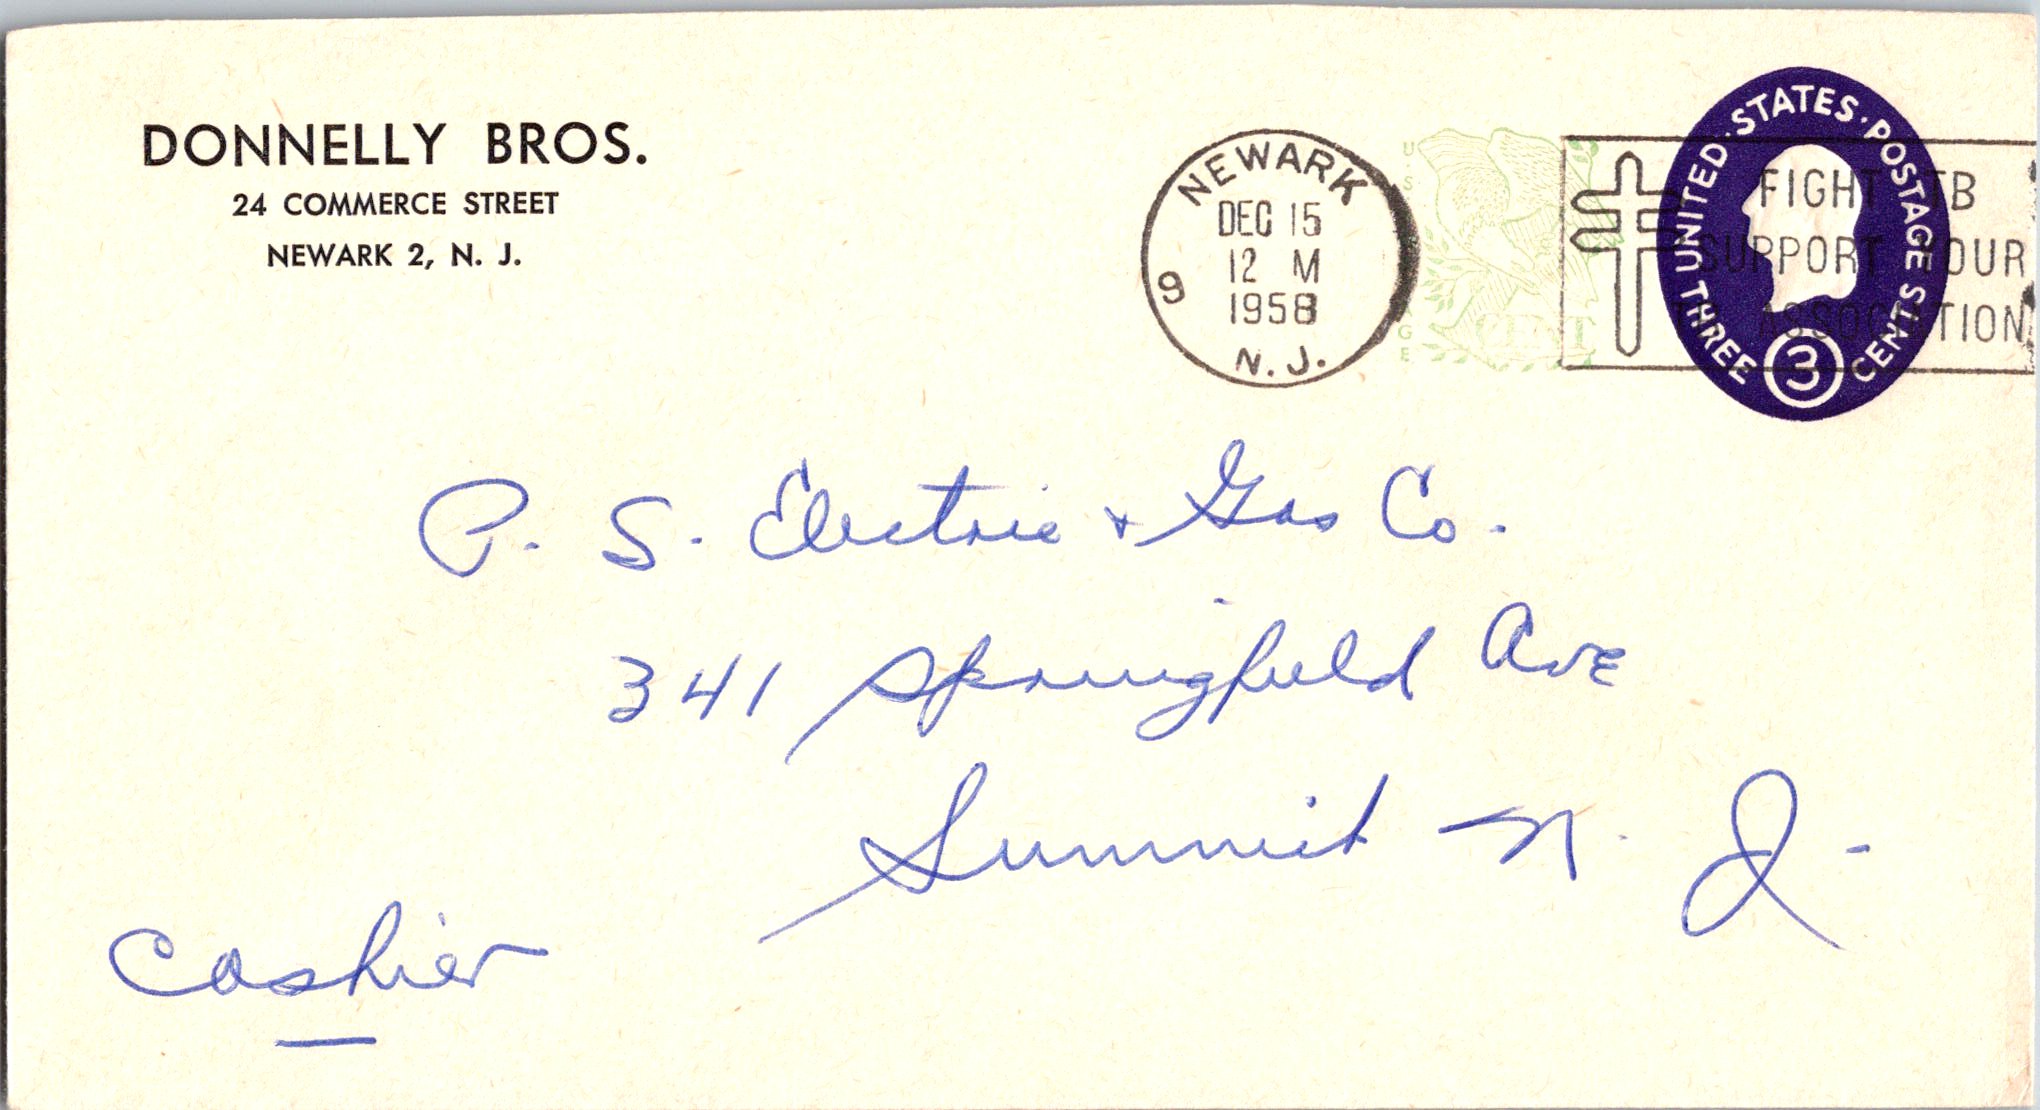 DONNELLY BROS.
24 COMMERCE STREET
NEWARK 2, N. J.
NEWARK
DEC 15
12 M
1958
9
N. J.
FIGHT TB
SUPPORT YOUR
ASSOCIATION
UNITED · STATES · POSTAGE
THREE 3 CENTS
P. S. Electric + Gas Co.
341 Springfield Ave
Summit N. J.
Cashier